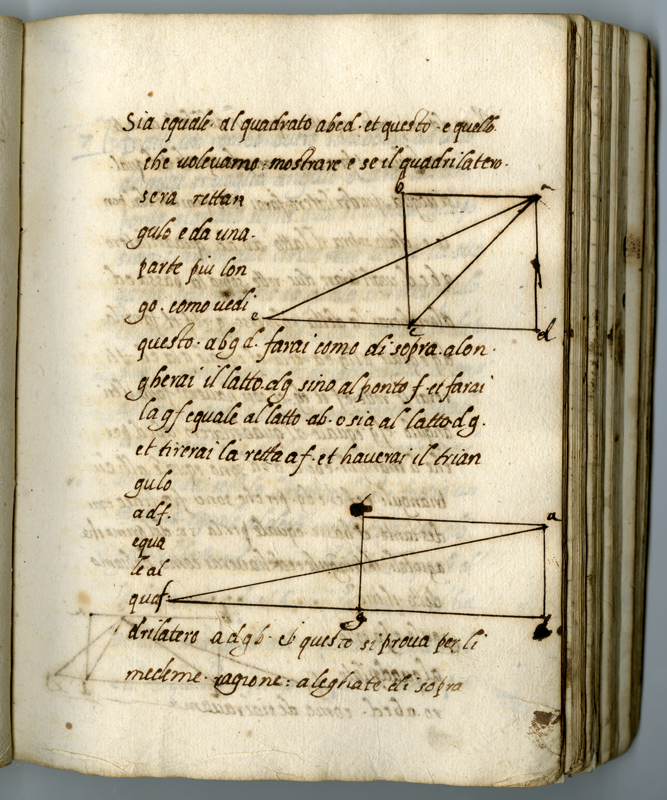 Sia equale · al quadrato abcd · et questo · e quello
che volevamo · mostrare e se il quadrilatero ·
b
a
sera rettan
gulo e da una ·
parte piu lon
go · como vedi
e
c
d
questo · abgd · farai como di sopra · alon ·
gherai il latto · dg sino al ponto f · et farai
la gf equale al latto · ab · o sia al latto dg ·
et tirerai la retta af · et haverai il trian
gulo
b
a
adf ·
equa
le al
qua
f
g
d
drilatero adgb · eb questo si prova per li
medeme · ragione : aleghate · di sopra